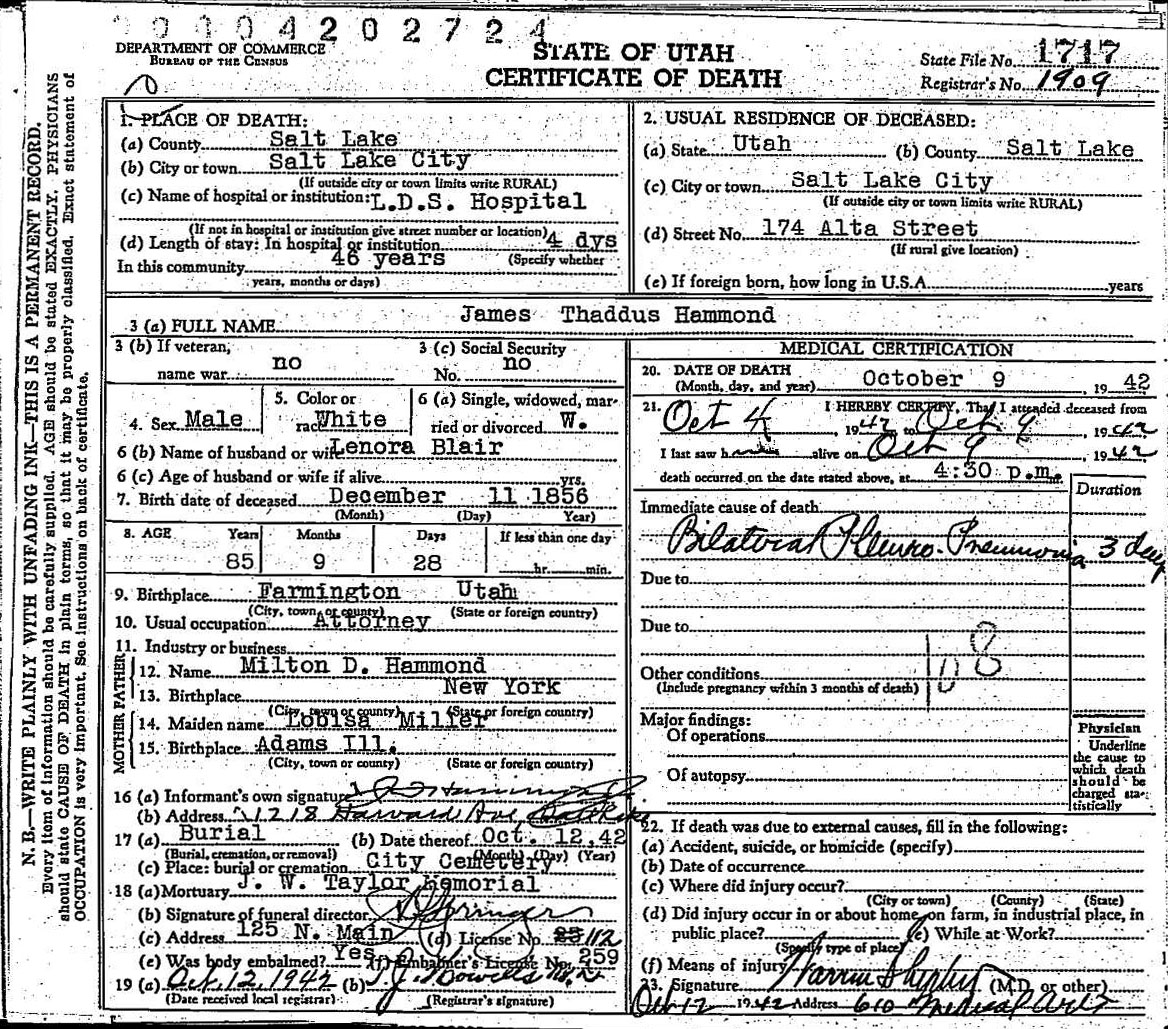 0 0 0 4 2 0 2 7 2 4
DEPARTMENT OF COMMERCE
BUREAU OF THE CENSUS
STATE OF UTAH
CERTIFICATE OF DEATH
State File No. 1717
Registrar's No. 1909
N. B.—WRITE PLAINLY WITH UNFADING INK—THIS IS A PERMANENT RECORD.
Every item of information should be carefully supplied. AGE should be stated EXACTLY. PHYSICIANS
should state CAUSE OF DEATH in plain terms, so that it may be properly classified. Exact statement of
OCCUPATION is very important. See instructions on back of certificate.
1. PLACE OF DEATH:
(a) County Salt Lake
(b) City or town Salt Lake City
(If outside city or town limits write RURAL)
(c) Name of hospital or institution: L.D.S. Hospital
(If not in hospital or institution give street number or location)
(d) Length of stay: In hospital or institution 4 dys
(Specify whether
In this community 46 years
years, months or days)
2. USUAL RESIDENCE OF DECEASED:
(a) State Utah (b) County Salt Lake
(c) City or town Salt Lake City
(If outside city or town limits write RURAL)
(d) Street No. 174 Alta Street
(If rural give location)
(e) If foreign born, how long in U.S.A. years
3 (a) FULL NAME James Thaddus Hammond
3 (b) If veteran, name war no
3 (c) Social Security No. no
4. Sex Male
5. Color or race White
6 (a) Single, widowed, married or divorced W.
6 (b) Name of husband or wife Lenora Blair
6 (c) Age of husband or wife if alive yrs.
7. Birth date of deceased December 11 1856
(Month) (Day) Year)
8. AGE Years Months Days If less than one day
85 9 28 hr. min.
9. Birthplace Farmington Utah
(City, town or county) (State or foreign country)
10. Usual occupation Attorney
11. Industry or business
FATHER
12. Name Milton D. Hammond
13. Birthplace New York
(City, town or county) (State or foreign country)
MOTHER
14. Maiden name Lobisa Miller
15. Birthplace Adams Ill.
(City, town or county) (State or foreign country)
16 (a) Informant's own signature
(b) Address 1218 Harvard Ave
17 (a) Burial (b) Date thereof Oct. 12, 42
(Burial, cremation, or removal) (Month) (Day) (Year)
(c) Place: burial or cremation City Cemetery
18 (a) Mortuary J. W. Taylor Memorial
(b) Signature of funeral director
(c) Address 125 N. Main (d) License No. 112
(e) Was body embalmed? Yes (f) Embalmer's License No. 259
19 (a) Oct. 12, 1942 (b)
(Date received local registrar) (Registrar's signature)
MEDICAL CERTIFICATION
20. DATE OF DEATH
(Month, day, and year) October 9, 1942
21. I HEREBY CERTIFY, That I attended deceased from
Oct 4, 1942 to Oct 9, 1942
I last saw h alive on Oct 9, 1942
death occurred on the date stated above, at 4:30 p.m.
Duration
Immediate cause of death
Bilateral Pleuro-Pneumonia 3 days
Due to
Due to
108
Other conditions
(Include pregnancy within 3 months of death)
Major findings:
Of operations
Of autopsy
Physician
Underline
the cause to
which death
should be
charged sta-
tistically
22. If death was due to external causes, fill in the following:
(a) Accident, suicide, or homicide (specify)
(b) Date of occurrence
(c) Where did injury occur?
(City or town) (County) (State)
(d) Did injury occur in or about home, on farm, in industrial place, in
public place? (e) While at Work?
(Specify type of place)
(f) Means of injury
23. Signature (M.D. or other)
Oct 12 1942 Address 610 Medical Arts